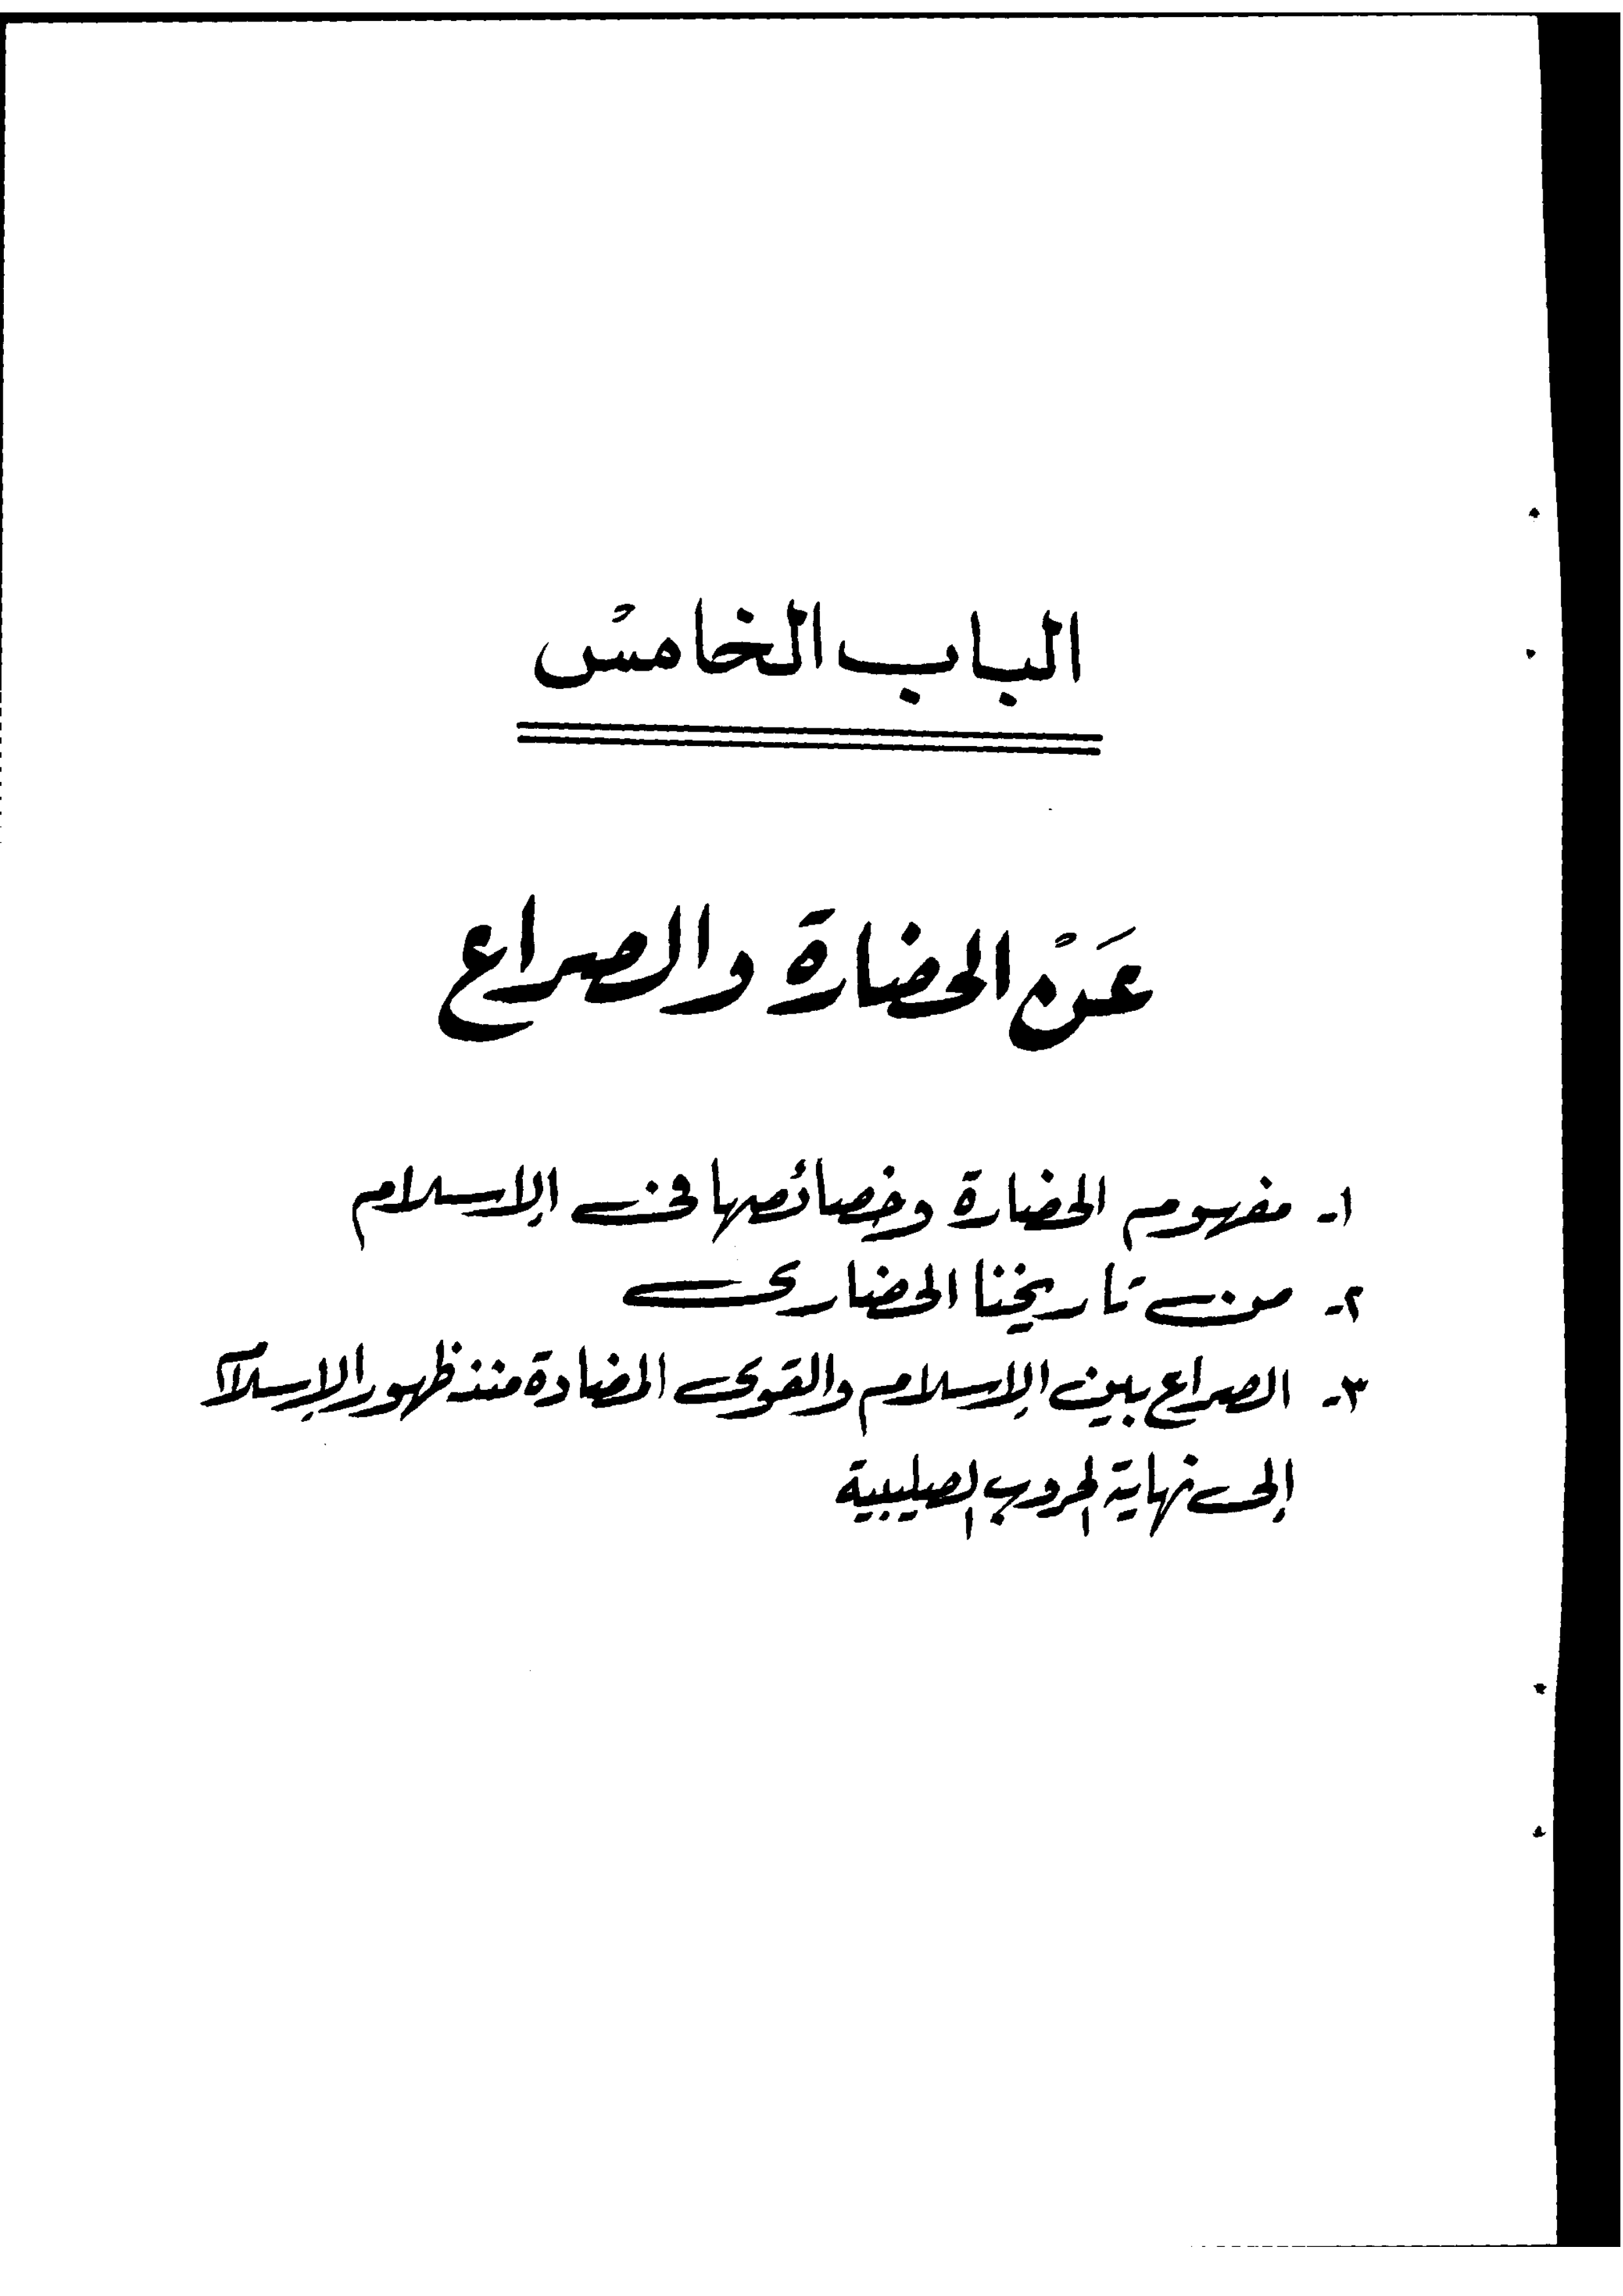 الباب الخامسْ
عَنْ الحضارة والصراع
١- مفهوم الحضارة وخصائصها فى الإسلام
٢- من تاريخنا الحضارى
٣- الصراع بين الإسلام والقوى المضادة منذ ظهور الإسلام
إلى نهاية الحروب الصليبية